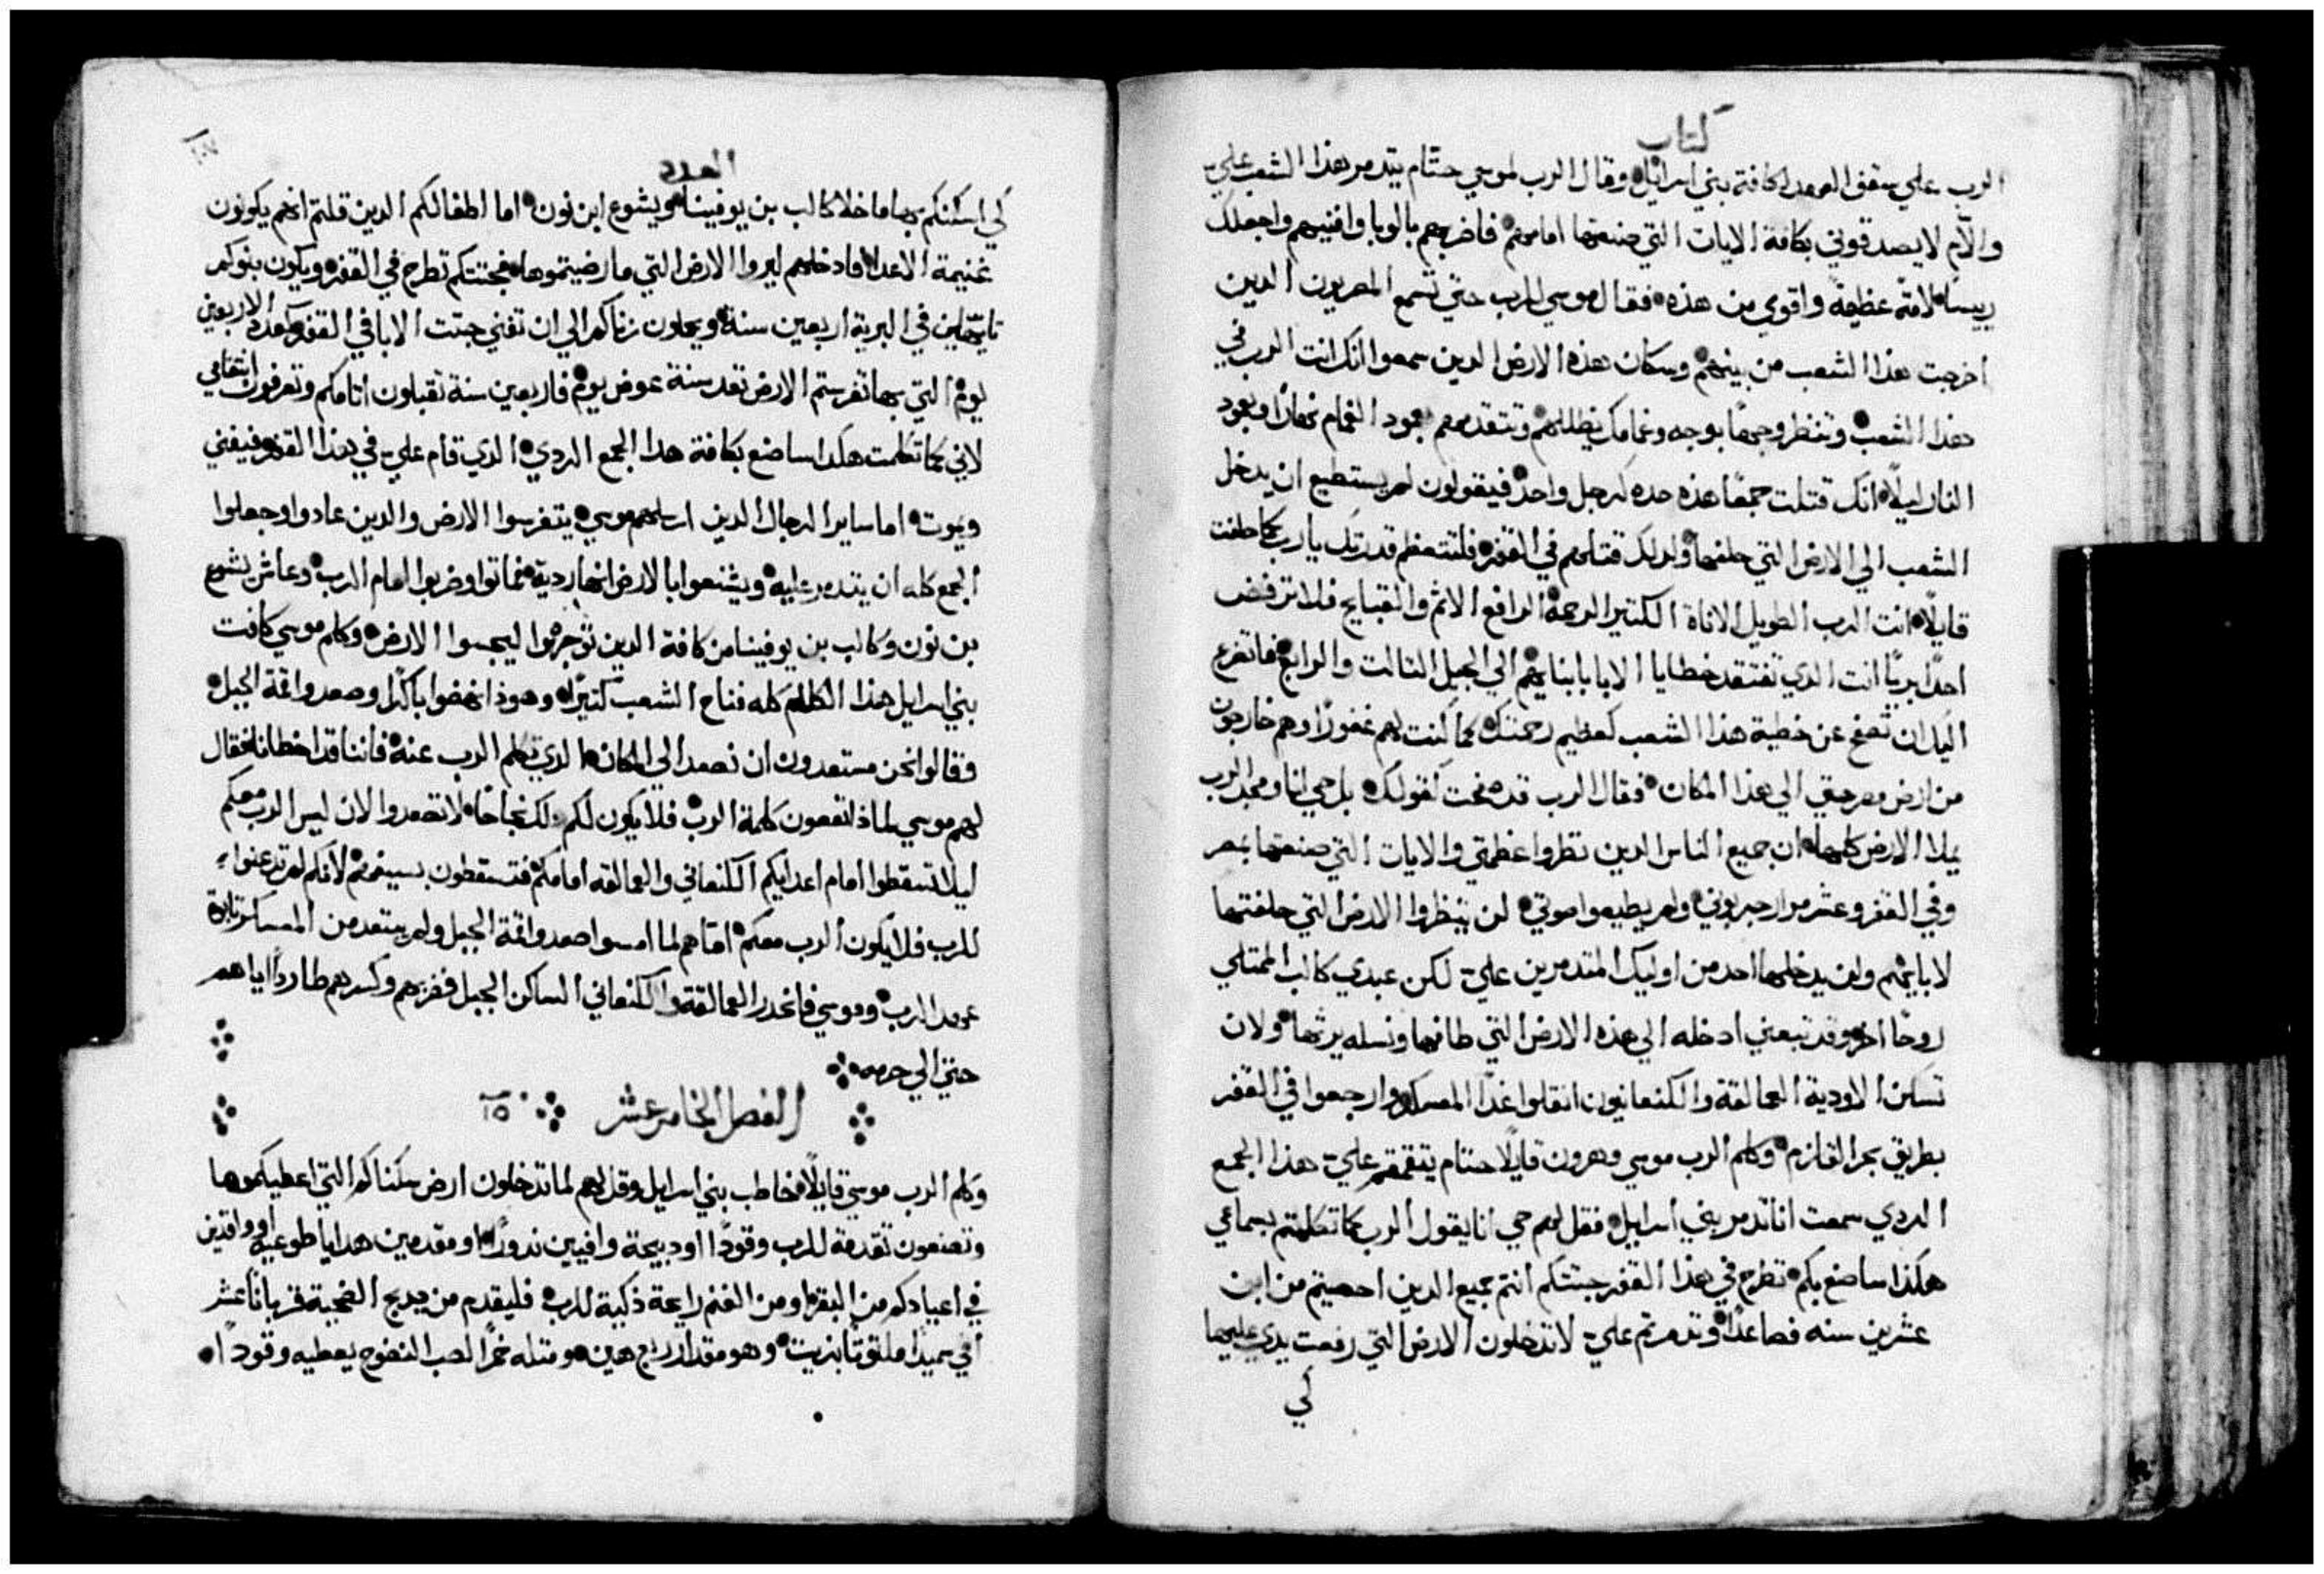 كتاب
الرب علي سقف العهد لكافة بني اسرائيل وقال الرب لموسي حتام يتدمر هذا الشعب علي
والام لا يصدقوني بكافة الايات التي صنعتها امامهم فاضربهم بالوبا وافنيهم واجعلك
رييسًا لامة عظيمة واقوي من هذه فقال موسي للرب حتي تسمع المصريون الدين
اخرجت هذا الشعب من بينهم وسكان هذه الارض الدين سمعوا انك انت الرب في
هذا الشعب وتنظر وجهًا بوجه وغمامك يظللهم وتتقدمهم بعمود الغمام نهارًا وبعمود
النار ليلًا انك قتلت جمعًا هذه حده كرجل واحد فيقولون لم يستطيع ان يدخل
الشعب الي الارض التي حلفها ولدلك قتلهم في القفر فلتتعظم قدرتك يا رب كما حلفت
قايلًا انت الرب الطويل الاناة الكتير الرحمة الرافع الاثم والقبايح فلا ترفض
احدًا بريًا انت الدي تفتقد خطايا الابا بابنايهم الي الجيل التالت والرابع فاتضرع
اليك ان تصفح عن خطية هذا الشعب كعظيم رحمتك كما كنت لهم غفورًا وهم خارجون
من ارض مصر حتي الي هذا المكان فقال الرب قد صفحت كقولك بل حي انا ومجد الرب
يملا الارض كلها ان جميع الناس الدين نظروا عظمتي والايات التي صنعتها بمصر
وفي القفر وعشر مرار جربوني ولم يطيعوا صوتي لن ينظروا الارض التي حلفتها
لابايهم ولن يدخلها احد من اوليك المتدمرين علي لكن عبدي كالب الممتلي
روحًا اخر وقد تبعني ادخله الي هذه الارض التي طافها ونسله يرثها ولان
تسكن الاودية العمالقة والكنعانيون انقلوا غدًا المعسكر وارجعوا في القفر
بطريق بحر القلزم وكلم الرب موسي وهرون قايلًا حتام يتقمقم علي هذا الجمع
الردي سمعت انا تدمر بني اسرايل فقل لهم حي انا يقول الرب كما تكلمتم بسماعي
هكذا ساصنع بكم تطرح في هذا القفر جتتكم انتم جميع الدين احصيتم من ابن
عشرين سنه فصاعدًا وتدمرتم علي لا تدخلون الارض التي رفعت يدي عليها
لي
العدد
١٠٧
لي اسكنكم بها ما خلا كالب بن يوفينا ويشوع ابن نون اما اطفالكم الدين قلتم انهم يكونون
غنيمة الاعدا فادخلهم ليروا الارض التي ما رضيتموها فجتتكم تطرح في القفر ويكون بنوكم
تايهين في البرية اربعين سنة ويحملون زناكم الي ان تفني جتت الابا في القفر وكعدد الاربعين
يومًا التي بها تفرستم الارض تعد سنة عوض يوم فاربعين سنة تقبلون اتامكم وتعرفون انتقامي
لاني كما تكلمت هكدا ساصنع بكافة هدا الجمع الردي الدي قام علي في هذا القفر فيفني
ويموت اما ساير الرجال الدين ارسلهم موسي يتفرسوا الارض والدين عادوا وجعلوا
الجمع كله ان يتدمر عليه ويشنعوا بالارض انها ردية فماتوا وضربوا امام الرب وعاش يشوع
بن نون وكالب بن يوفينا من كافة الدين توجهوا ليجسوا الارض وكلم موسي كافت
بني اسرايل هذا الكلام كله فناح الشعب كتيرًا وهوذا نهضوا باكرًا وصعدوا قمة الجبل
وقالوا نحن مستعدون ان نصعد الي المكان الدي تكلم الرب عنه فاننا قد اخطانا فقال
لهم موسي لماذا تتعدون كلمة الرب فلا يكون لكم دلك نجاحًا لا تصعدوا الان ليس الرب معكم
ليلا تسقطوا امام اعدايكم الكنعاني والعمالقه امامكم فتسقطون بسيفهم لانكم لم تدعنوا
للرب فلا يكون الرب معكم اما هم لما امسوا صعدوا قمة الجبل ولم يبتعد من المعسكر تابوت
عهد الرب وموسي فانحدر العمالقة والكنعاني الساكن الجبل فضربهم وكسرهم طاردًا اياهم
حتي الي حرمه
الفصل الخامس عشر ١٥
وكلم الرب موسي قايلًا خاطب بني اسرايل وقل لهم لما تدخلون ارض سكناكم التي اعطيكموها
وتصنعون تقدمة للرب وقودًا او دبيحة وافيين ندورًا او مقدمين هدايا طوعية او واقدين
في اعيادكم من البقر او من الغنم رايحة ذكية للرب فليقدم من يدبح الضحية قربانًا عشر
افي سميدًا ملتوتًا بزيت وهو مقدار ربع هين ومتله خمرًا لصب النضوح يعطيه وقودًا